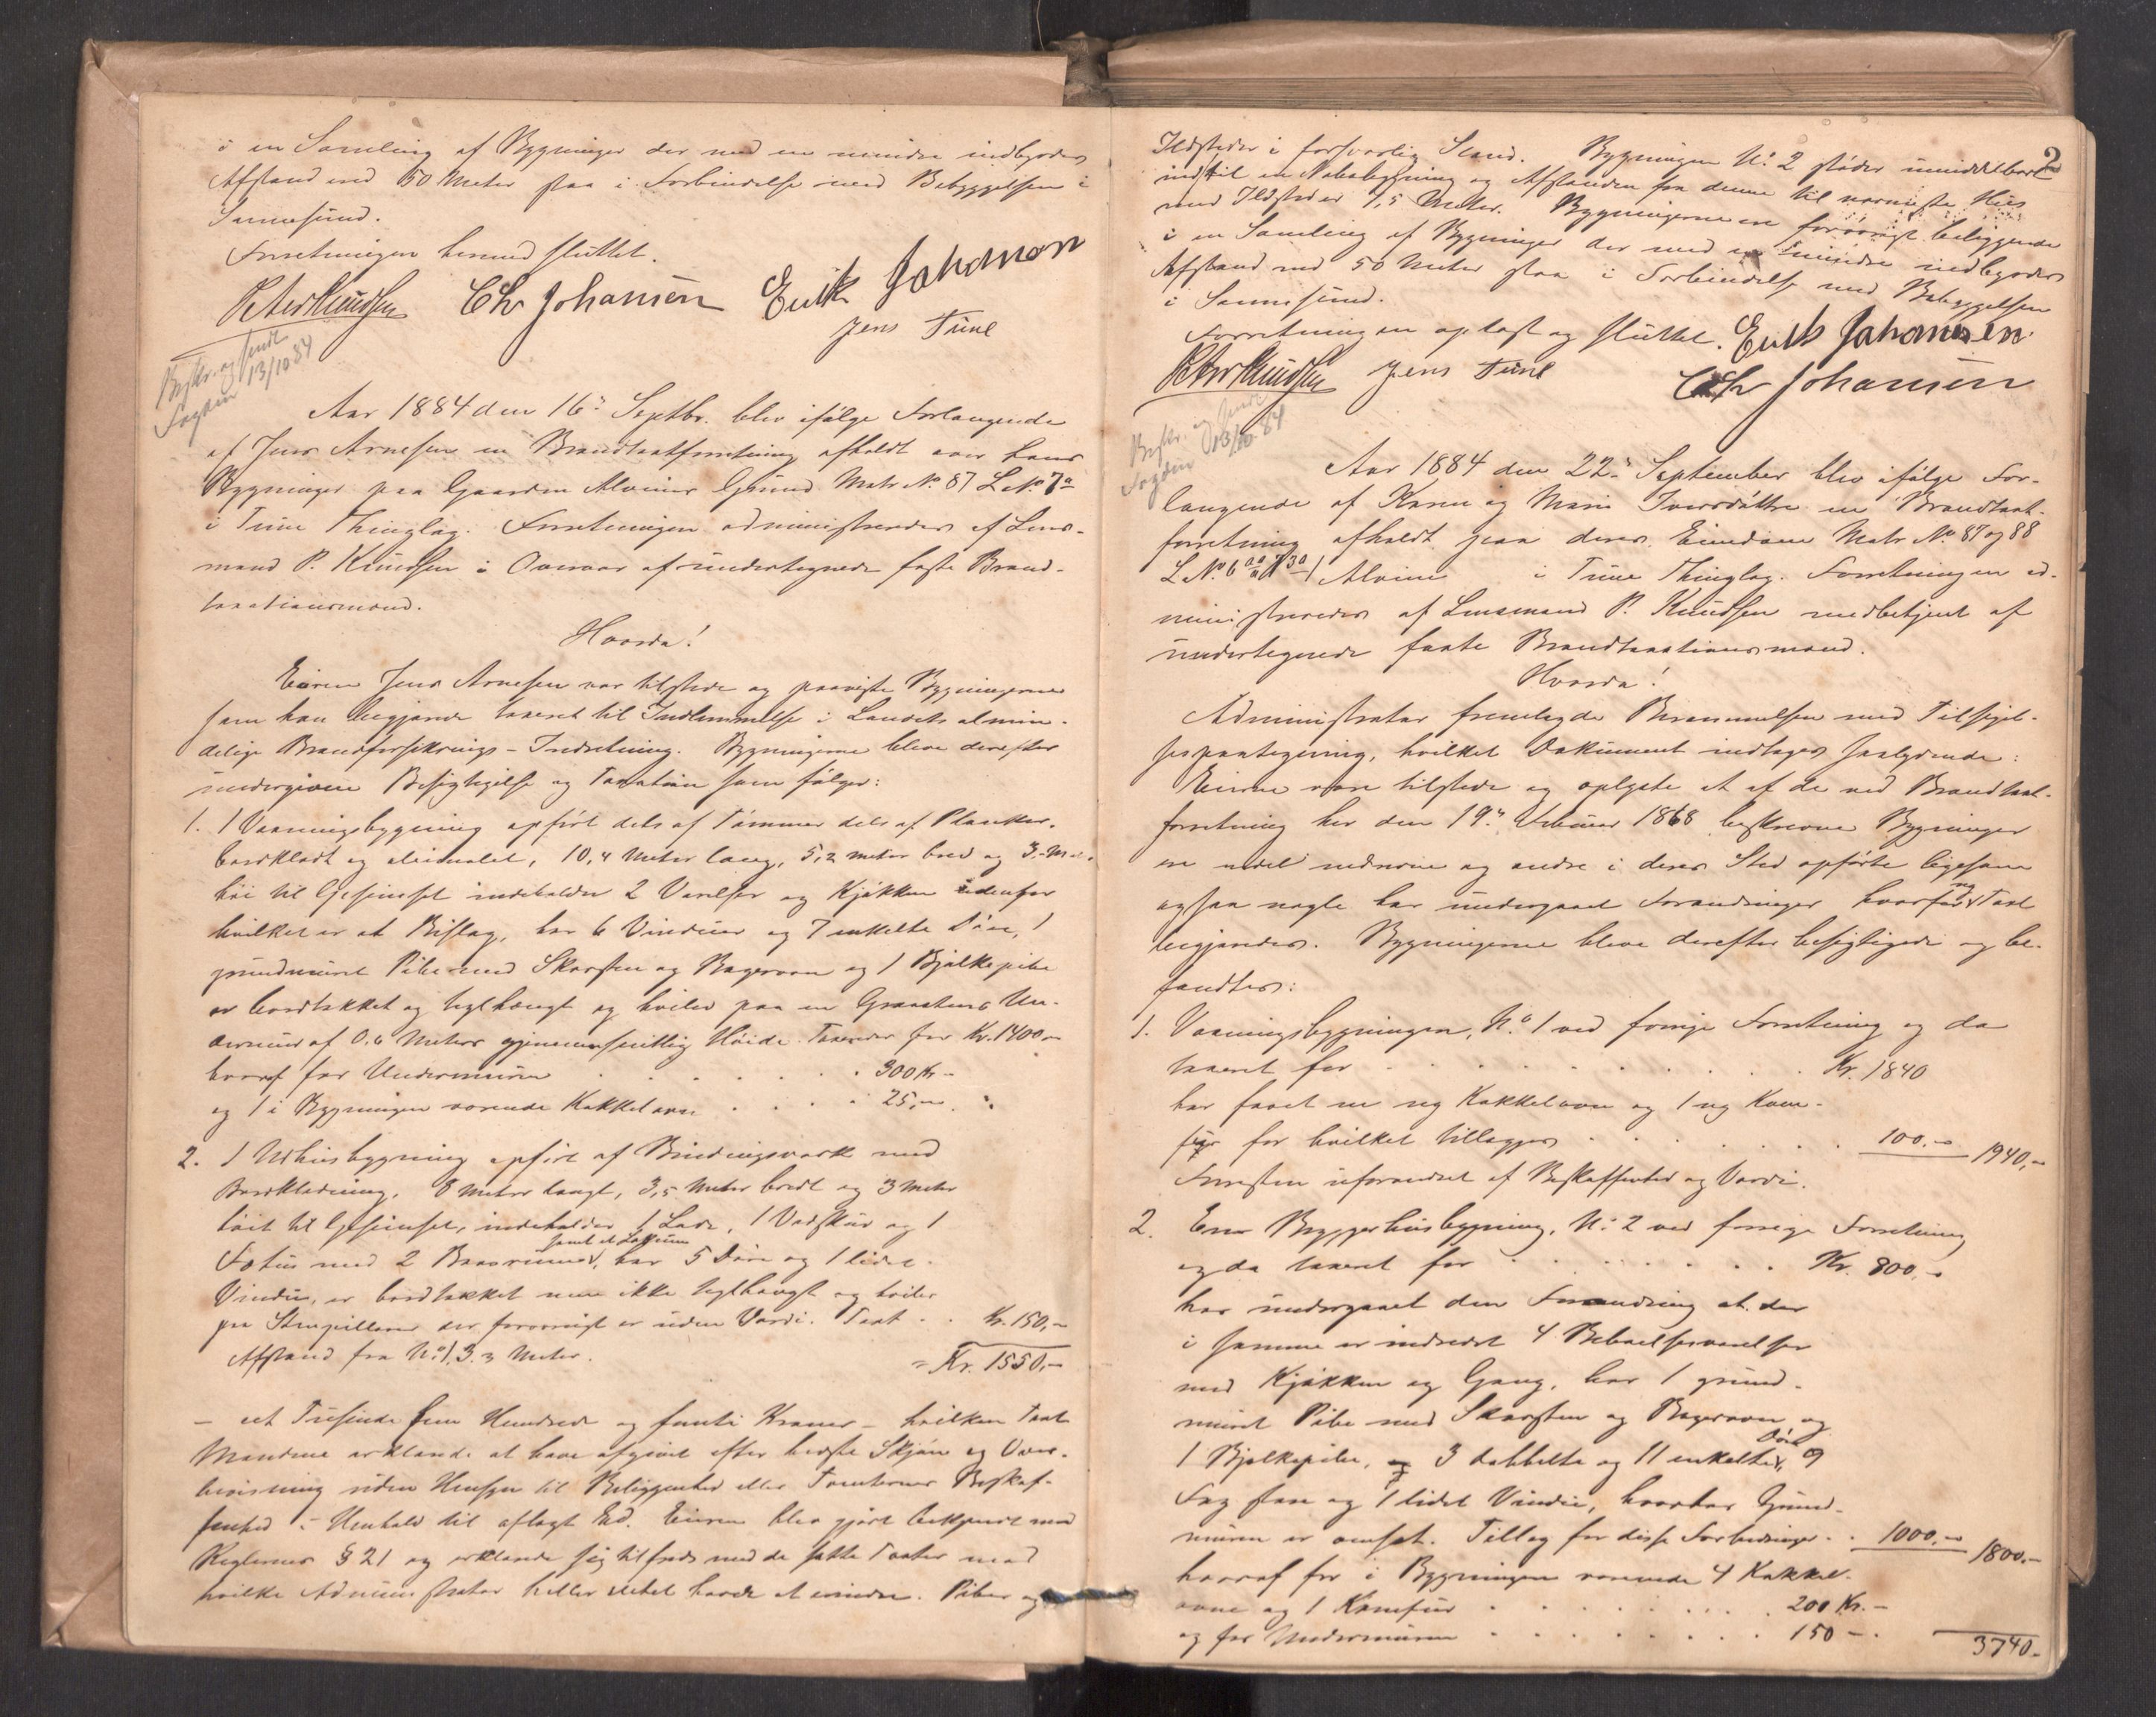 i en Samling af Bygninger der med en mindre indbyrdes
Afstand end 50 Meter staa i Forbindelse med Bebyggelsen i
Sannesund.
Forretningen hermed sluttet.
Peter Knudsen Chr Johansen Erik Johansen
Jens Tune
Beskr. og sendt
Fogden 13/10 84
Aar 1884 den 16de Septbr. blev ifølge Forlangende
af Jens Arnesen en Brandtaxtforretning afholdt over hans
Bygninger paa Gaarden Alvims Grund Matr No. 87 L No. 7a
i Tune Thinglag. Forretningen administreredes af Lens-
mand P. Knudsen i Overvær af undertegnede faste Brand-
taxationsmænd.
Hvorda!
Eieren Jens Arnesen var tilstede og paaviste Bygningerne
som han begjærede taxeret til Indlemmelse i Landets almin-
delige Brandforsikrings-Indretning. Bygningerne bleve derefter
undergivne Besigtigelse og Taxation som følger:
1. 1 Vaaningsbygning opført dels af Tømmer dels af Planker,
bordklædt og oliemalet, 10,4 Meter lang, 5,2 Meter bred og 3,- Met.
høi til Gesimset indeholder 2 Værelser og Kjøkken udenfor
hvilket er et Bislag, har 6 Vinduer og 7 enkelte Døre, 1
grundmuret Pibe med Skorsten og Bagerovn og 1 Bjælkepibe
er bordtækket og teglhængt og hviler paa en Graastens Un-
dermur af 0,6 Meters gjennemsnitlig Høide. Taxeredes for Kr. 1400,-
hvoraf for Undermuren . . . . . . 300 Kr -
og 1 i Bygningen værende Kakkelovn . . . . 25,-
2. 1 Udhusbygning opført af Bindingsværk med
Bordklædning, 8 Meter langt, 3,5 Meter bredt og 3 Meter
høit til Gesimset, indeholder 1 Lade, 1 Vedskur og 1
Fæhus med 2 Baasrum samt et Lokum, har 5 Døre og 1 lidet
Vindu, er bordtækket men ikke teglhængt og hviler
paa Stenpillarer der forøvrigt er uden Værdi. Taxt . . Kr. 150,-
Afstand fra No. 1, 3.3 Meter.
= Kr. 1550,-
- et Tusinde fem Hundrede og femti Kroner - hvilken Taxt
Mændene erklærede at have afgivet efter bedste Skjøn og Over-
bevisning uden Hensyn til Beliggenhed eller Tomternes Beskaf-
fenhed i Henhold til aflagt Ed. Eieren blev gjort bekjendt med
Reglernes § 21 og erklærede sig tilfreds med de satte Taxter mod
hvilke Administrator heller intet havde at erindre. Piber og
2
Ildsteder i forsvarlig Stand. Bygningen No. 2 støder umiddelbart
indtil en Nabobygning og Afstanden fra denne til nærmeste Hus
med Ildsted er 7,5 Meter. Bygningerne ere forøvrigt beliggende
i en Samling af Bygninger der med en mindre indbyrdes
Afstand end 50 Meter staa i Forbindelse med Bebyggelsen
i Sannesund.
Forretningen oplæst og sluttet. Erik Johansen.
Peter Knudsen Jens Tune
Chr Johansen
Beskr. og sendt
Fogden 13/10 84
Aar 1884 den 22de September blev ifølge For-
langende af Karen og Marie Iversdøttre en Brandtaxt-
forretning afholdt paa deres Eiendom Matr No. 87 og 88
L No. 6 Alvim i Tune Thinglag. Forretningen ad-
ministreredes af Lensmand P. Knudsen medbetjent af
undertegnede faste Brandtaxationsmænd.
Hvorda!
Administrator fremlagde Berammelsen med Tilsigel-
sespaategning, hvilket Dokument indtages saalydende:
Eierne vare tilstede og oplyste at af de ved Brandtaxt-
forretning her den 19de Februar 1868 beskrevne Bygninger
ere endel nedrevne og andre i deres Sted opførte ligesom
ogsaa nogle har undergaaet Forandringer hvorfor ny Taxt
begjæredes. Bygningerne bleve derefter besigtigede og be-
fandtes:
1. Vaaningsbygningen, No. 1 ved forrige Forretning og da
taxeret for . . . . . . . Kr. 1840
har faaet en ny Kakkelovn og 1 ny Kom-
fyr for hvilket tillægges . . . . . . . 100,- 1940,-
Forresten uforandret af Beskaffenhed og Værdi.
2. En Bryggerhusbygning, No. 2 ved forrige Forretning
og da taxeret for . . . . . . . Kr. 800,-
har undergaaet den Forandring at der
i samme er indredet 4 Beboelsesværelser
med Kjøkken og Gang, har 1 grund-
muret Pibe med Skorsten og Bagerovn og
1 Bjælkepibe, 3 dobbelte og 11 enkelte Døre, 9
Fag store og 1 lidet Vindu, hvorhos Grund-
muren er omsat. Tillæg for disse Forbedringer . . 1000,- 1800,-
hvoraf for i Bygningen værende 4 Kakkel-
ovne og 1 Komfur . . . . . . . 200 Kr. -
og for Undermuren . . . . . . . 150 -
3740.-